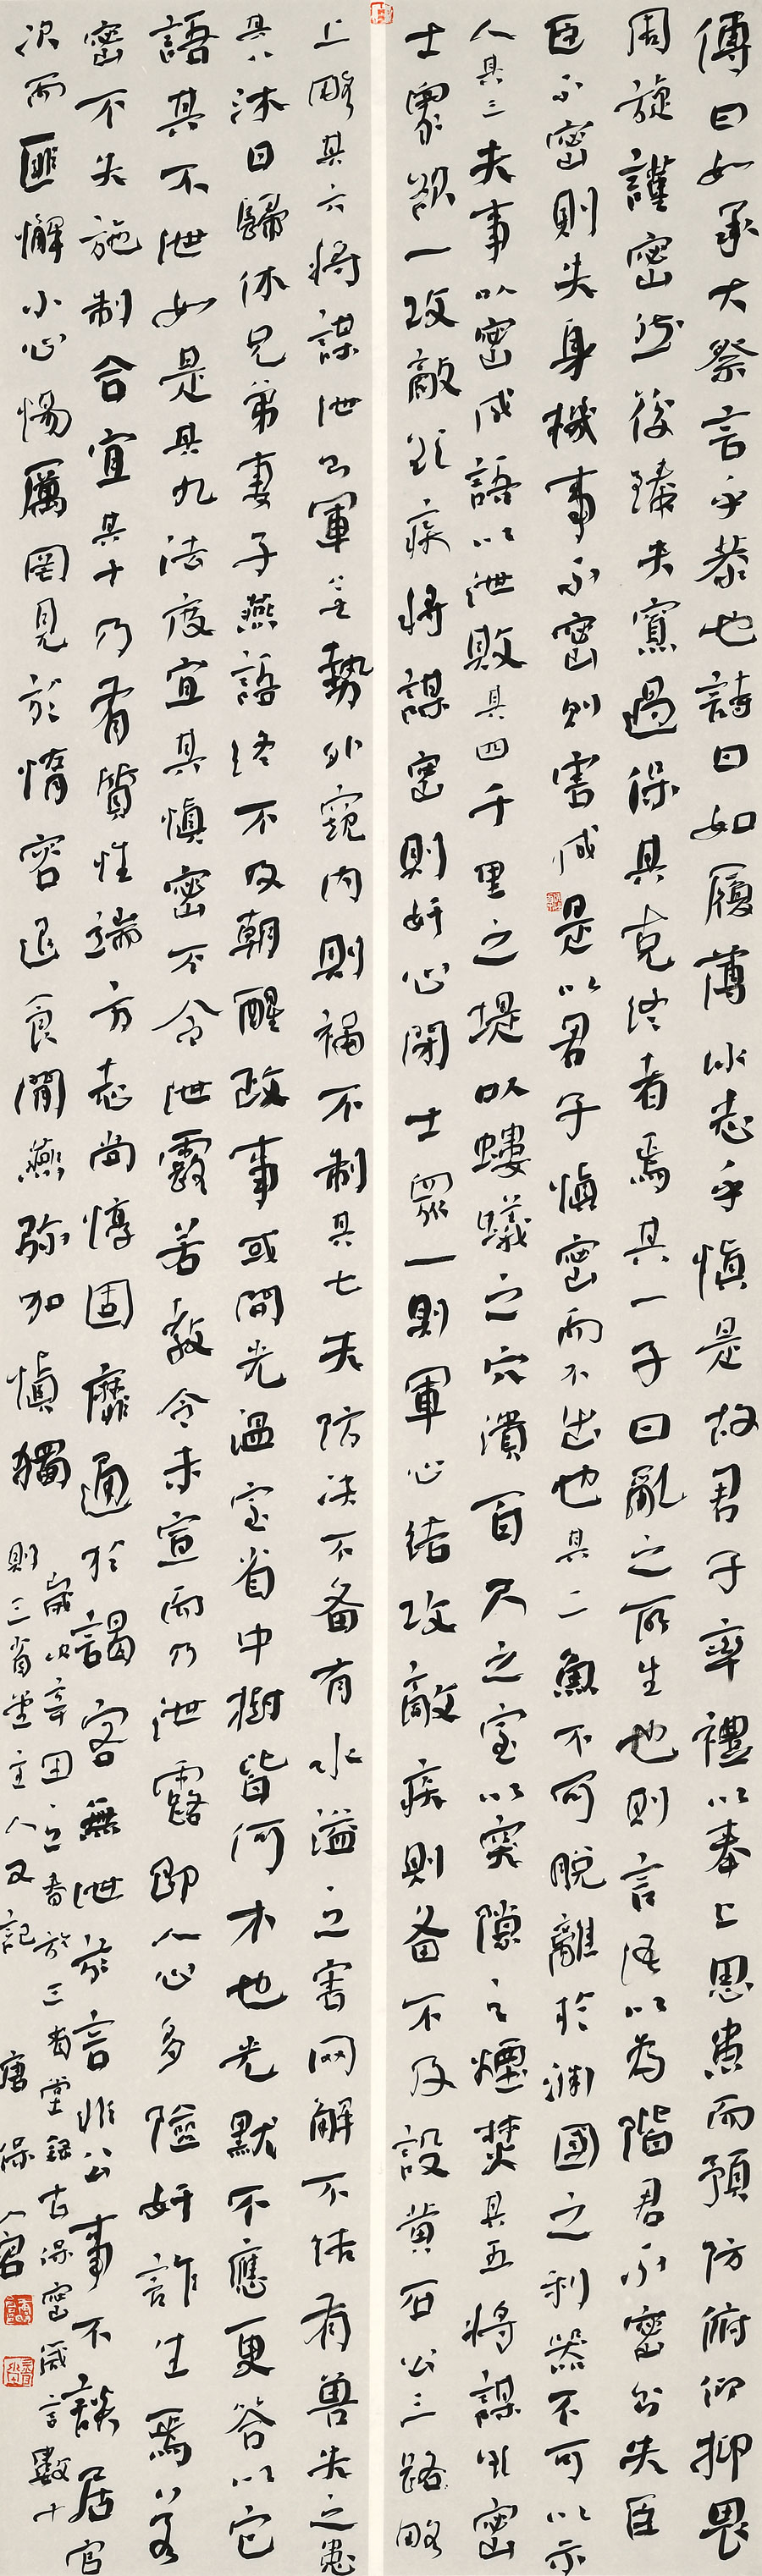 傅曰如承大祭言乎恭也詩曰如履薄冰志乎慎是故君子率禮以奉上思患而預防俯仰抑畏
周旋謹密然後臻夫寡過保其克終者焉其一子曰亂之所生也則言語以為階君不密則失臣
臣不密則失身機事不密則害成是以君子慎密而不出也其二魚不可脫離於淵國之利器不可以示
人其三夫事以密成語以泄敗其四千里之堤以螻蟻之穴潰百尺之室以突隙之煙焚其五將謀欲密
士眾欲一攻敵欲疾將謀密則奸心閉士眾一則軍心結攻敵疾則备不及設黃石公三略
上略其六將謀泄則軍無勢外窺內則禍不制其七夫防決不备有水溢之害网解不結有兽失之患
其八沐日歸休兄弟妻子燕語終不及朝醒政事或問光溫室省中樹皆何木也光默不應更答以它
語其不泄如是其九法度宜其慎密不令泄露若敕令未宣而乃泄露即人心多險奸詐生焉若
密不失施制合宜其十乃有質性端方志尚惇固靡通於謁客無泄於言非公事不談居官
次而匪懈小心惕厲罔見於惰容退食閒燕弥加慎獨
歲次辛丑之春於三省堂錄古保密箴言數十
則三省堂主人又記 唐保